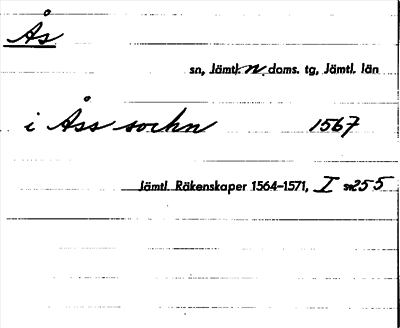 Ås
sn, Jämtl. n. doms. tg, Jämtl. län
i Åss sockn 1567
Jämtl. Räkenskaper 1564-1571, I s 255